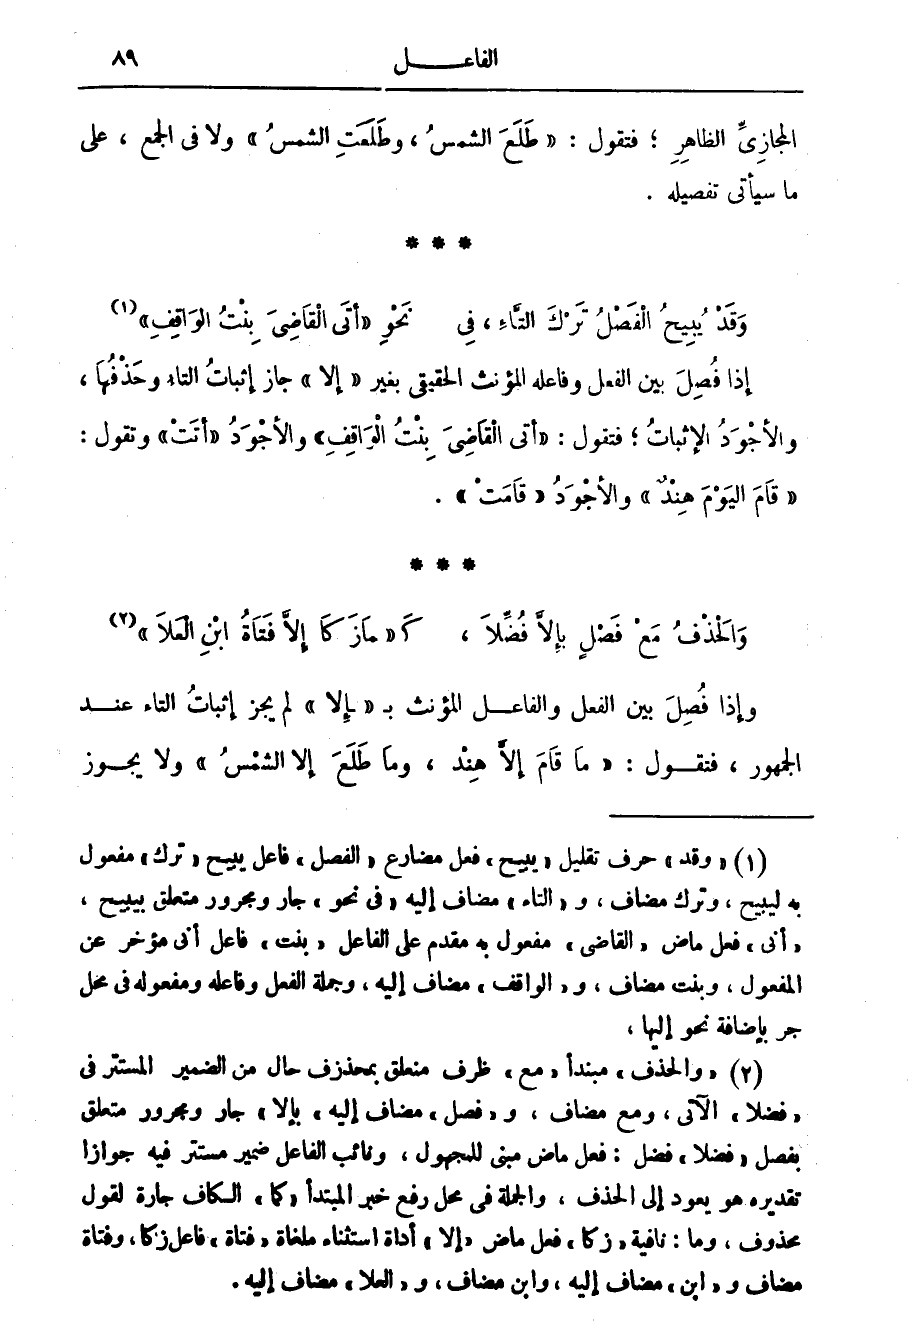 الفاعـــل ٨٩
المجازىِّ الظاهِرِ ؛ فتقول : « طَلَعَ الشمسُ ، وطَلَعَتِ الشمسُ » ولا فى الجمع ، على
ما سيأتى تفصيله .
* * *
وَقَدْ يُبِيحُ الْفَصْلُ تَرْكَ التَّاءِ ، فِى نَحْوِ «أَتَى الْقَاضِىَ بِنْتُ الوَاقِفِ» (١)
إذا فُصِلَ بين الفعل وفاعله المؤنث الحقيقى بغير « إلا » جاز إثباتُ التاء وحَذْفُهَا ،
والأجْوَدُ الإثباتُ ؛ فتقول : «أتى الْقَاضِىَ بِنْتُ الْوَاقِفِ» والأجْوَدُ «أتَتْ» وتقول :
« قَامَ اليَوْمَ هِنْدٌ » والأجْوَدُ « قَامَتْ » .
* * *
وَالْحَذْفُ مَعْ فَصْلٍ بِإِلاَّ فُضِّلاَ ، كَـ « مَازَكَا إِلاَّ فَتَاةُ ابْنِ الْعَلاَ » (٢)
وإذا فُصِلَ بين الفعل والفاعـل المؤنث بـ « ـإلا » لم يجز إثباتُ التاء عنـد
الجمهور ، فتقـول : « مَا قَامَ إلاَّ هِنْد ، وما طَلَعَ إلا الشمْسُ » ولا يجـوز
(١) «وقد» حرف تقليل «يبيح» فعل مضارع «الفصل» فاعل يبيح «ترك» مفعول
به ليبيح ، وترك مضاف ، و «التاء» مضاف إليه «فى نحو» جار ومجرور متعلق بيبيح ،
«أتى» فعل ماض «القاضى» مفعول به مقدم على الفاعل «بنت» فاعل أتى مؤخر عن
المفعول ، وبنت مضاف ، و «الواقف» مضاف إليه ، وجملة الفعل وفاعله ومفعوله فى محل
جر بإضافة نحو إليها ،
(٢) «والحذف» مبتدأ «مع» ظرف متعلق بمحذوف حال من الضمير المستتر فى
«فضلا» الآتى ، ومع مضاف ، و «فصل» مضاف إليه «بإلا» جار ومجرور متعلق
بفصل «فضلا» فضل : فعل ماض مبنى للمجهول ، ونائب الفاعل ضمير مستتر فيه جوازا
تقديره هو يعود إلى الحذف ، والجملة فى محل رفع خبر المبتدأ «كما» الكاف جارة لقول
محذوف ، وما : نافية «زكا» فعل ماض «إلا» أداة استثناء ملغاة «فتاة» فاعل زكا ، وفتاة
مضاف و «ابن» مضاف إليه ، وابن مضاف ، و «العلا» مضاف إليه .